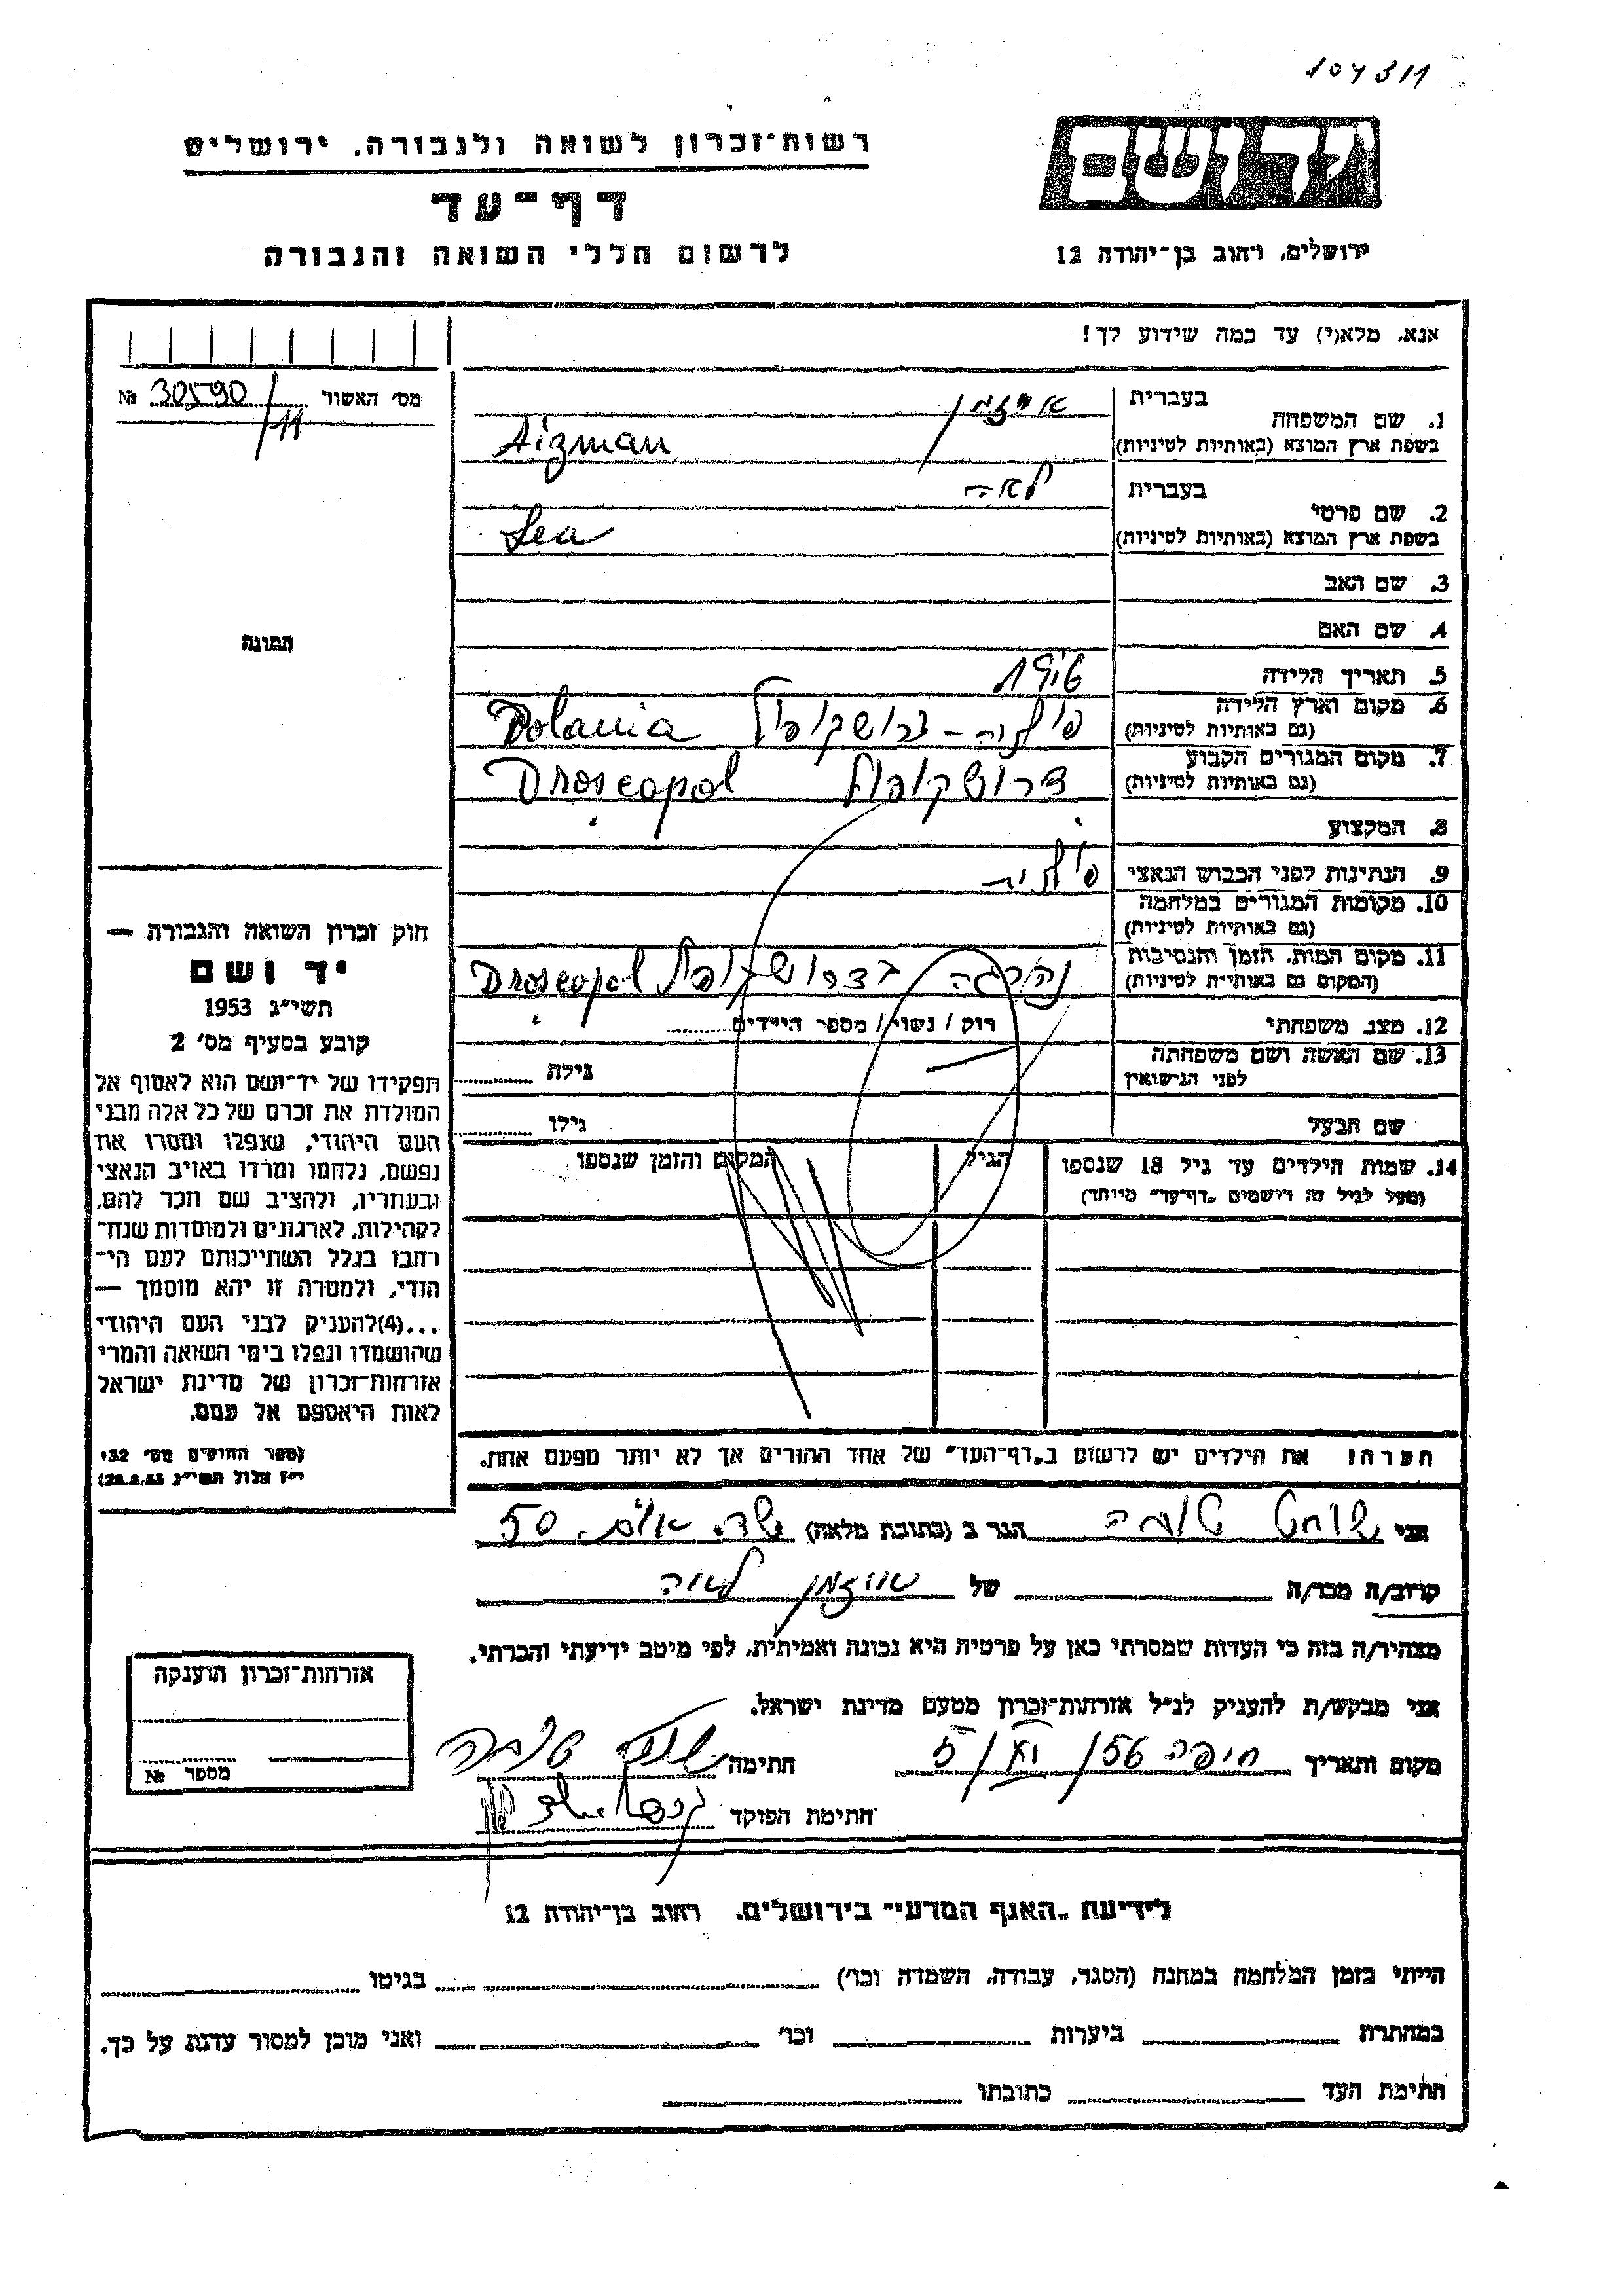 107311
רשות־זכרון לשואה ולגבורה, ירושלים
יד ושם
דף־עד
לרשום חללי השואה והגבורה
ירושלים, רחוב בן־יהודה 12
אנא, מלא(י) עד כמה שידוע לך!
מס׳ האשור 30590/11 №
1. שם המשפחה
בעברית אייזמן
בשפת ארץ המוצא (באותיות לטיניות) Aizman
2. שם פרטי
בעברית לאה
בשפת ארץ המוצא (באותיות לטיניות) Lea
3. שם האב
4. שם האם
תמונה
5. תאריך הלידה
6. מקום וארץ הלידה
(גם באותיות לטיניות) Polania
7. מקום המגורים הקבוע
(גם באותיות לטיניות) דרושקופול Droscopol
8. המקצוע
9. הנתינות לפני הכבוש הנאצי
10. מקומות המגורים במלחמה
(גם באותיות לטיניות)
11. מקום המות, הזמן והנסיבות
(המקום גם באותיות לטיניות) נהרגה בדרושקופול Droscopol
12. מצב משפחתי רוק / נשוי / מספר הילדים
13. שם האשה ושם משפחתה
לפני הנישואין גילה
שם הבעל גילו
14. שמות הילדים עד גיל 18 שנספו הגיל המקום והזמן שנספו
(מעל לגיל זה רושמים „דף־עד״ מיוחד)
חוק זכרון השואה והגבורה —
יד ושם
תשי״ג 1953
קובע בסעיף מס׳ 2
תפקידו של יד־ושם הוא לאסוף אל
המולדת את זכרם של כל אלה מבני
העם היהודי, שנפלו ומסרו את
נפשם, נלחמו ומרדו באויב הנאצי
ובעוזריו, ולהציב שם וזכר להם,
לקהילות, לארגונים ולמוסדות שנח־
רבו בגלל השתייכותם לעם הי־
הודי, ולמטרה זו יהא מוסמך —
...(4)להעניק לבני העם היהודי
שהושמדו ונפלו בימי השואה והמרי
אזרחות־זכרון של מדינת ישראל
לאות היאספם אל עמם.
(ספר החוקים מס׳ 132
י״ז אלול תשי״ג 28.8.53)
הערה: את הילדים יש לרשום ב„דף־העד״ של אחד ההורים אך לא יותר מפעם אחת.
אני שוחט טובה הגר ב (כתובת מלאה) 50
קרוב/ה מכר/ה של אייזמן לאה
מצהיר/ה בזה כי העדות שמסרתי כאן על פרטיה היא נכונה ואמיתית, לפי מיטב ידיעתי והכרתי.
אני מבקש/ת להעניק לנ״ל אזרחות־זכרון מטעם מדינת ישראל.
מקום ותאריך חיפה 5/VI/56 חתימה שוחט טובה
חתימת הפוקד
אזרחות־זכרון הוענקה
מספר №
לידיעת „האגף המדעי״ בירושלים, רחוב בן־יהודה 12
הייתי בזמן המלחמה במחנה (הסגר, עבודה, השמדה וכו׳) בגיטו
במחתרת ביערות וכו׳ ואני מוכן למסור עדות על כך.
חתימת העד כתובתו